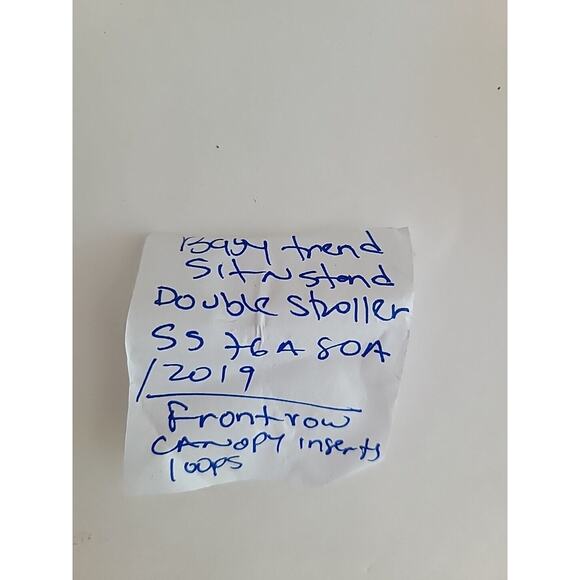 Baby trend
Sit N Stand
Double Stroller
SS 76A 80A
/2019
Front row
CANOPY inserts
loops